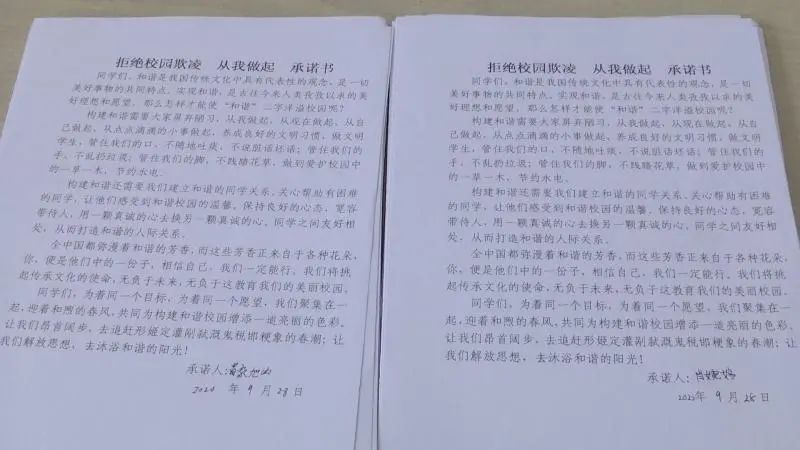 拒绝校园欺凌 从我做起 承诺书
同学们，和谐是我国传统文化中具有代表性的观念，是一切
美好事物的共同特点，实现和谐，是古往今来人类孜孜以求的美
好理想和愿望，那么怎样才能使“和谐”二字洋溢校园呢？
构建和谐需要大家屏弃陋习，从我做起，从现在做起、从自
己做起，从点点滴滴的小事做起，养成良好的文明习惯，做文明
学生，管住我们的口，不随地吐痰、不说脏话坏话；管住我们的
手，不乱扔垃圾；管住我们的脚，不践踏花草，做到爱护校园中
的一草一木，节约水电.
构建和谐还需要我们建立和谐的同学关系、关心帮助有困难
的同学，让他们感受到和谐校园的温馨。保持良好的心态，宽容
带待人，用一颗真诚的心去换另一颗真诚的心、同学之间友好相
处，从而打造和谐的人际关系.
全中国都弥漫着和谐的芳香，而这些芳香正来自于各种花朵，
你，便是他们中的一份子，相信自己，我们一定能行，我们将挑
起传承文化的使命，无负于未来，无负于这教育我们的美丽校园。
同学们，为着同一个目标，为着同一个愿望，我们聚集在一
起，迎着和煦的春风，共同为构建和谐校园增添一道亮丽的色彩。
让我们昂首阔步，去追赶形姬定灌剐弑溉鬼税邯梗象的春潮；让
我们解放思想，去沐浴和谐的阳光！
承诺人：
2020 年 9 月 28 日
拒绝校园欺凌 从我做起 承诺书
同学们，和谐是我国传统文化中具有代表性的观念，是一切
美好事物的共同特点，实现和谐，是古往今来人类孜孜以求的美
好理想和愿望，那么怎样才能使“和谐”二字洋溢校园呢？
构建和谐需要大家屏弃陋习，从我做起，从现在做起、从自
己做起，从点点滴滴的小事做起，养成良好的文明习惯，做文明
学生，管住我们的口，不随地吐痰、不说脏话坏话；管住我们的
手，不乱扔垃圾；管住我们的脚，不践踏花草，做到爱护校园中
的一草一木，节约水电.
构建和谐还需要我们建立和谐的同学关系、关心帮助有困难
的同学，让他们感受到和谐校园的温馨。保持良好的心态，宽容
带待人，用一颗真诚的心去换另一颗真诚的心、同学之间友好相
处，从而打造和谐的人际关系.
全中国都弥漫着和谐的芳香，而这些芳香正来自于各种花朵，
你，便是他们中的一份子，相信自己，我们一定能行，我们将挑
起传承文化的使命，无负于未来，无负于这教育我们的美丽校园。
同学们，为着同一个目标，为着同一个愿望，我们聚集在一
起，迎着和煦的春风，共同为构建和谐校园增添一道亮丽的色彩。
让我们昂首阔步，去追赶形姬定灌剐弑溉鬼税邯梗象的春潮；让
我们解放思想，去沐浴和谐的阳光！
承诺人：肖婕婷
年 9 月 28 日